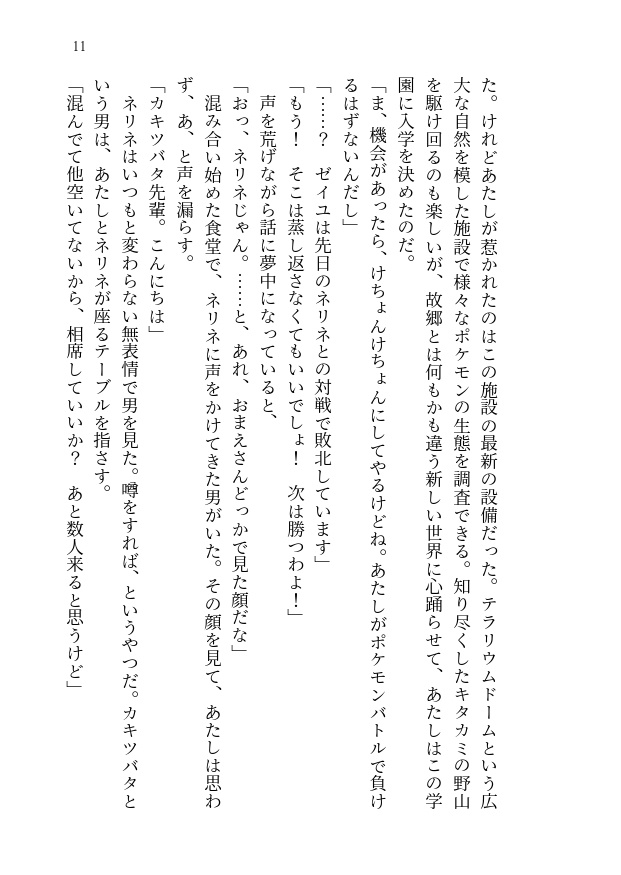 11
た。けれどあたしが惹かれたのはこの施設の最新の設備だった。テラリウムドームという広
大な自然を模した施設で様々なポケモンの生態を調査できる。知り尽くしたキタカミの野山
を駆け回るのも楽しいが、故郷とは何もかも違う新しい世界に心踊らせて、あたしはこの学
園に入学を決めたのだ。
「ま、機会があったら、けちょんけちょんにしてやるけどね。あたしがポケモンバトルで負け
るはずないんだし」
「……？　ゼイユは先日のネリネとの対戦で敗北しています」
「もう！　そこは蒸し返さなくてもいいでしょ！　次は勝つわよ！」
　声を荒げながら話に夢中になっていると、
「おっ、ネリネじゃん。……と、あれ、おまえさんどっかで見た顔だな」
　混み合い始めた食堂で、ネリネに声をかけてきた男がいた。その顔を見て、あたしは思わ
ず、あ、と声を漏らす。
「カキツバタ先輩。こんにちは」
　ネリネはいつもと変わらない無表情で男を見た。噂をすれば、というやつだ。カキツバタと
いう男は、あたしとネリネが座るテーブルを指さす。
「混んでて他空いてないから、相席していいか？　あと数人来ると思うけど」